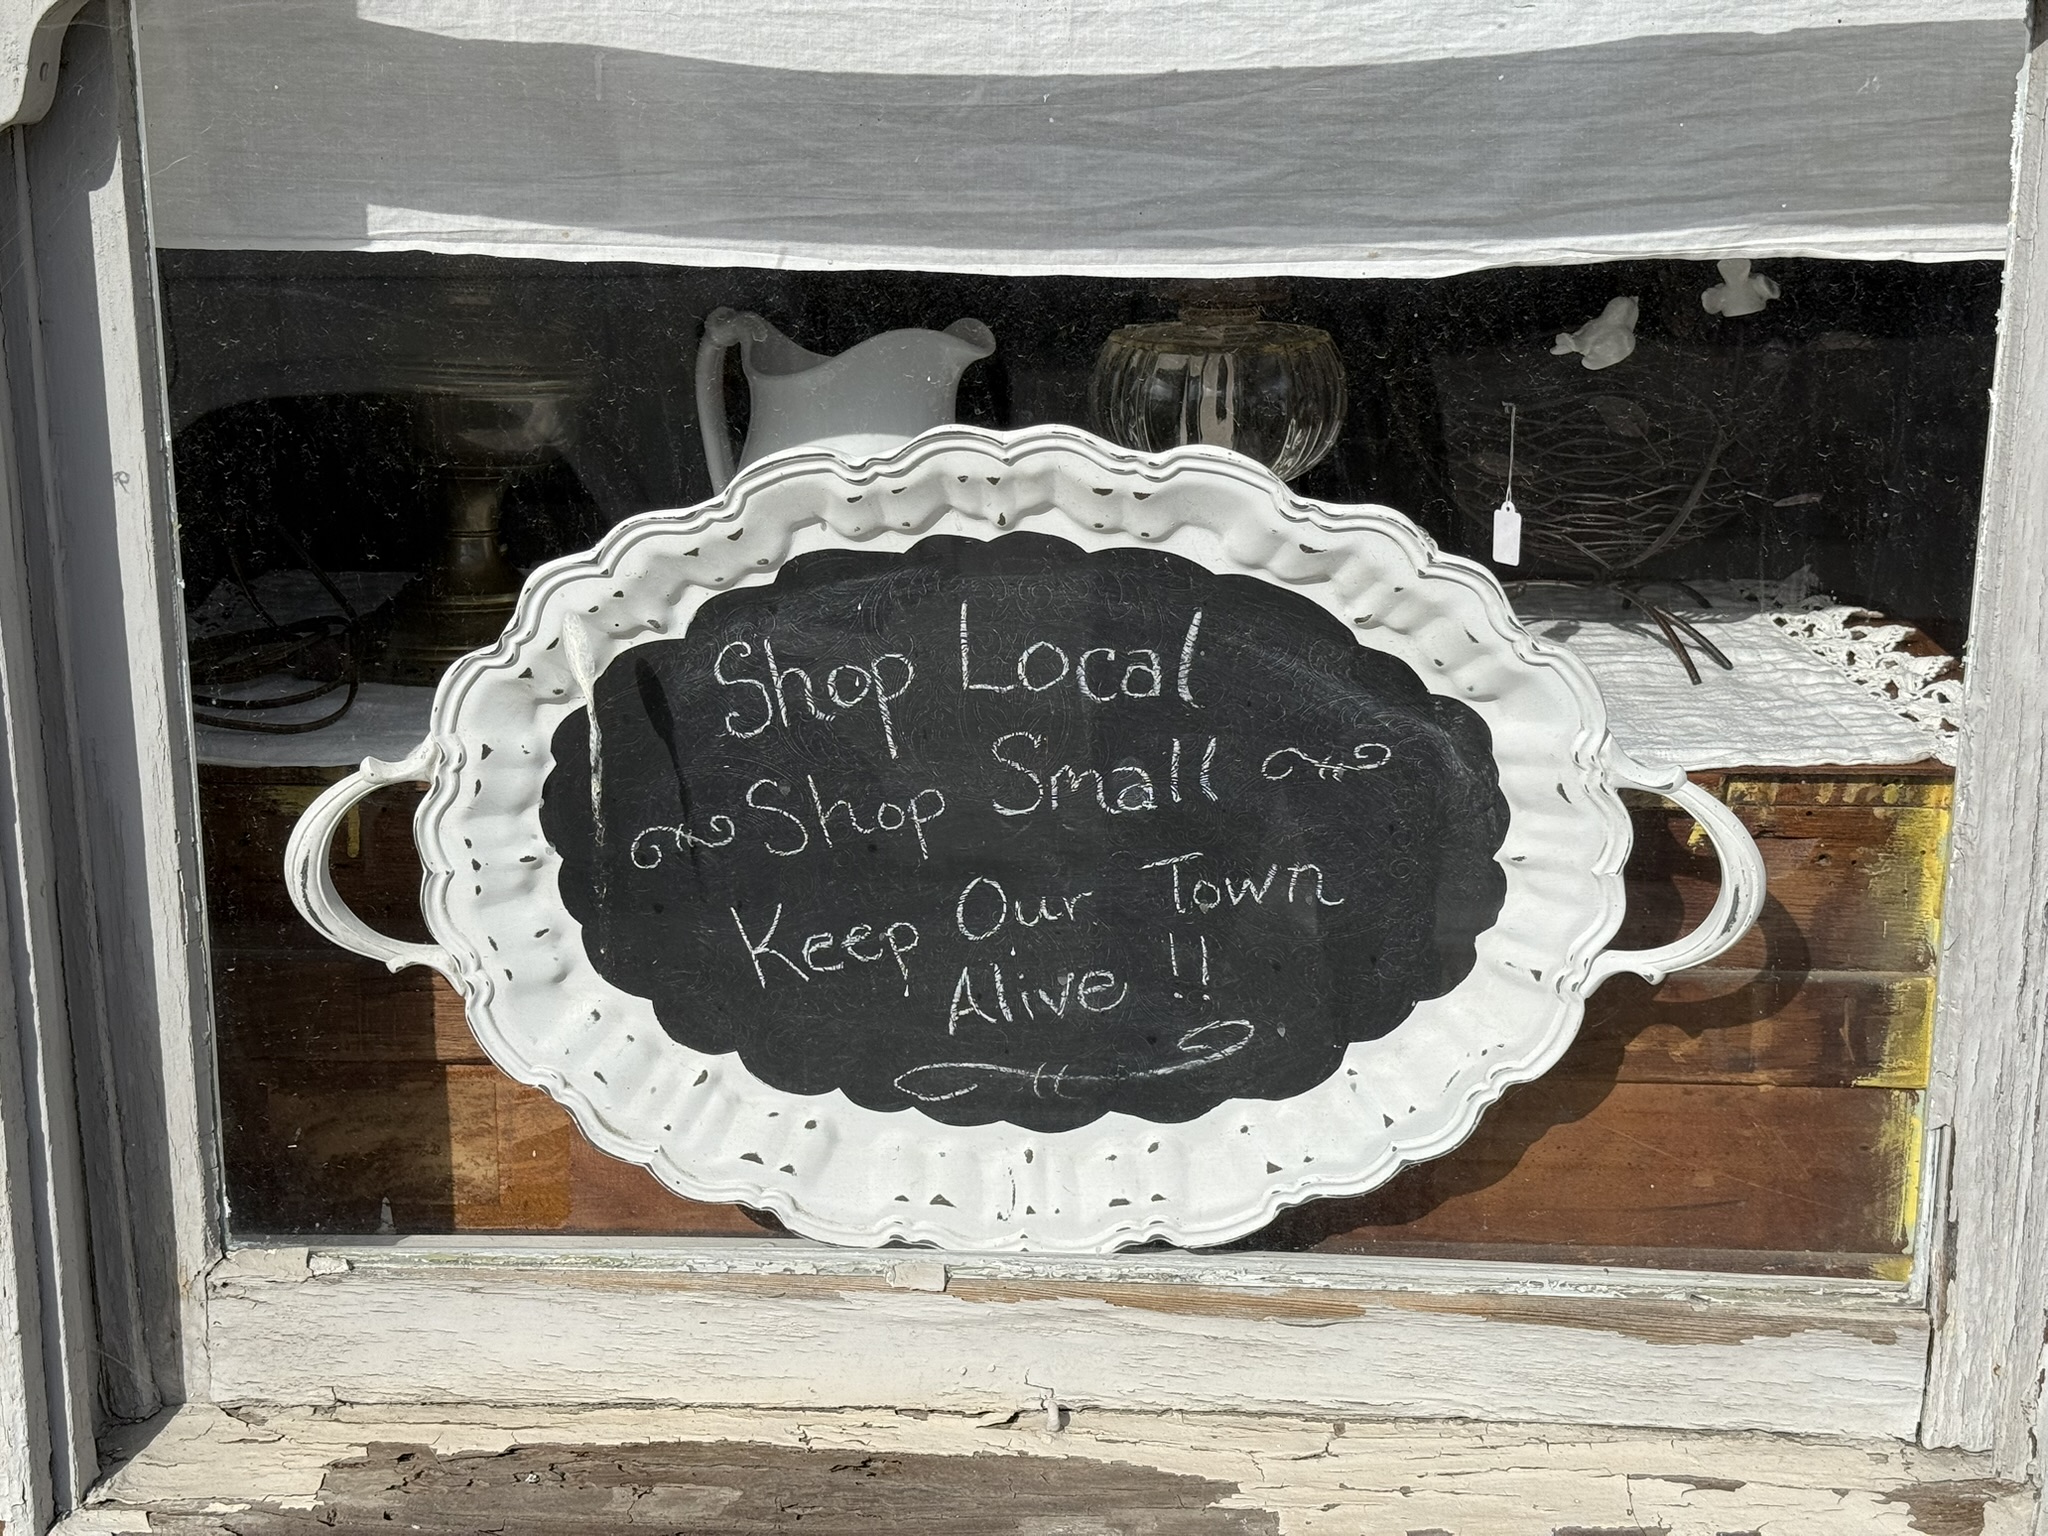 Shop Local
Shop Small
Keep Our Town
Alive !!